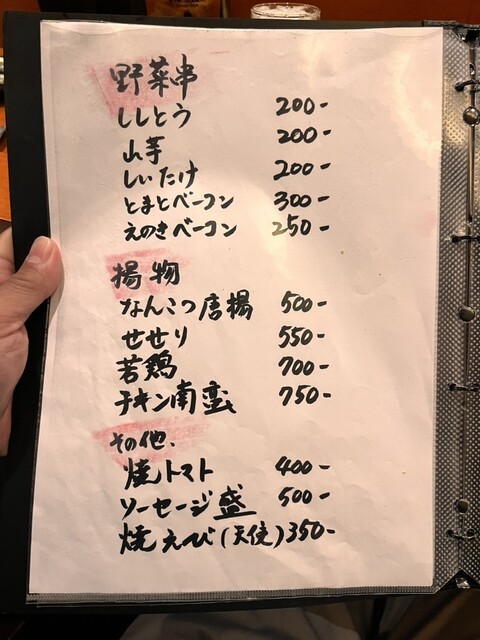 野菜串
ししとう 200-
山芋 200-
しいたけ 200-
とまとベーコン 300-
えのきベーコン 250-
揚物
なんこつ唐揚 500-
せせり 550-
若鶏 700-
チキン南蛮 750-
その他、
焼トマト 400-
ソーセージ盛 500-
焼えび(天使) 350-